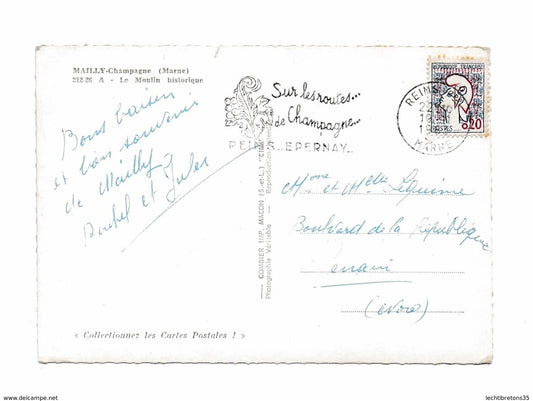 MAILLY-Champagne (Marne)
212-26 A - Le Moulin historique
Bons baisers
et bon souvenir
de Mailly
Rachel et Jules
Sur les routes...
de Champagne...
REIMS..EPERNAY..
REIMS
MARNE
REPUBLIQUE FRANÇAISE
POSTES
0,20
COMBIER IMP. MACON (S.-et-L.)
Photographie Véritable - Reproduction
Mme et Melle Lequime
Boulevard de la République
Denain
(Nord)
« Collectionnez les Cartes Postales ! »
www.delcampe.net
lechtibretons35